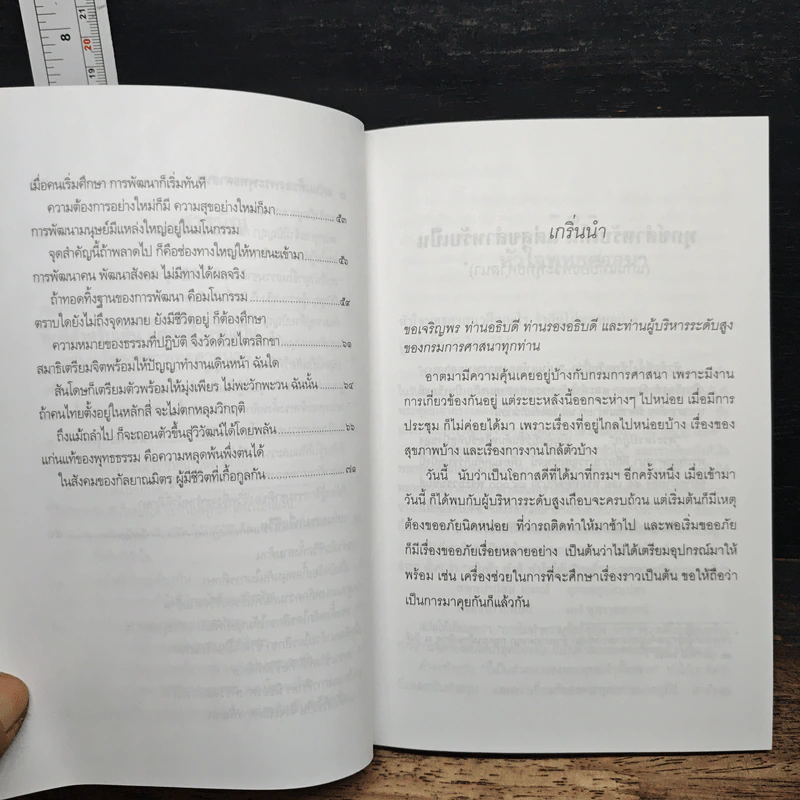 8
21
20
19
เมื่อคนเริ่มศึกษา การพัฒนาก็เริ่มทันที
ความต้องการอย่างใหม่ก็มี ความสุขอย่างใหม่ก็มา.....................๕๓
การพัฒนามนุษย์มีแหล่งใหญ่อยู่ในมโนกรรม
จุดสำคัญนี้ถ้าพลาดไป ก็คือช่องทางใหญ่ให้หายนะเข้ามา...........๕๖
การพัฒนาคน พัฒนาสังคม ไม่มีทางได้ผลจริง
ถ้าทอดทิ้งฐานของการพัฒนา คือมโนกรรม............................๕๙
ตราบใดยังไม่ถึงจุดหมาย ยังมีชีวิตอยู่ ก็ต้องศึกษา
ความหมายของธรรมที่ปฏิบัติ จึงวัดด้วยไตรสิกขา..................๖๑
สมาธิเตรียมจิตพร้อมให้ปัญญาทำงานเดินหน้า ฉันใด
สันโดษก็เตรียมตัวพร้อมให้มุ่งเพียร ไม่พะวักพะวน ฉันนั้น.......๖๔
ถ้าคนไทยตั้งอยู่ในหลักสี่ จะไม่ตกหลุมวิกฤติ
ถึงแม้ถลำไป ก็จะถอนตัวขึ้นสู่วิวัฒน์ได้โดยพลัน....................๖๖
แก่นแท้ของพุทธธรรม คือความหลุดพ้นพึ่งตนได้
ในสังคมของกัลยาณมิตร ผู้มีชีวิตที่เกื้อกูลกัน........................๗๑
เกริ่นนำ
ขอเจริญพร ท่านอธิบดี ท่านรองอธิบดี และท่านผู้บริหารระดับสูง
ของกรมการศาสนาทุกท่าน
อาตมามีความคุ้นเคยอยู่บ้างกับกรมการศาสนา เพราะมีงาน
การเกี่ยวข้องกันอยู่ แต่ระยะหลังนี้ออกจะห่างๆ ไปหน่อย เมื่อมีการ
ประชุม ก็ไม่ค่อยได้มา เพราะเรื่องที่อยู่ไกลไปหน่อยบ้าง เรื่องของ
สุขภาพบ้าง และเรื่องการงานใกล้ตัวบ้าง
วันนี้ นับว่าเป็นโอกาสดีที่ได้มาที่กรมฯ อีกครั้งหนึ่ง เมื่อเข้ามา
วันนี้ ก็ได้พบกับผู้บริหารระดับสูงเกือบจะครบถ้วน แต่เริ่มต้นก็มีเหตุ
ต้องขออภัยนิดหน่อย ที่ว่ารถติดทำให้มาช้าไป และพอเริ่มขออภัย
ก็มีเรื่องขออภัยเรื่อยหลายอย่าง เป็นต้นว่าไม่ได้เตรียมอุปกรณ์มาให้
พร้อม เช่น เครื่องช่วยในการที่จะศึกษาเรื่องราวเป็นต้น ขอให้ถือว่า
เป็นการมาคุยกันก็แล้วกัน